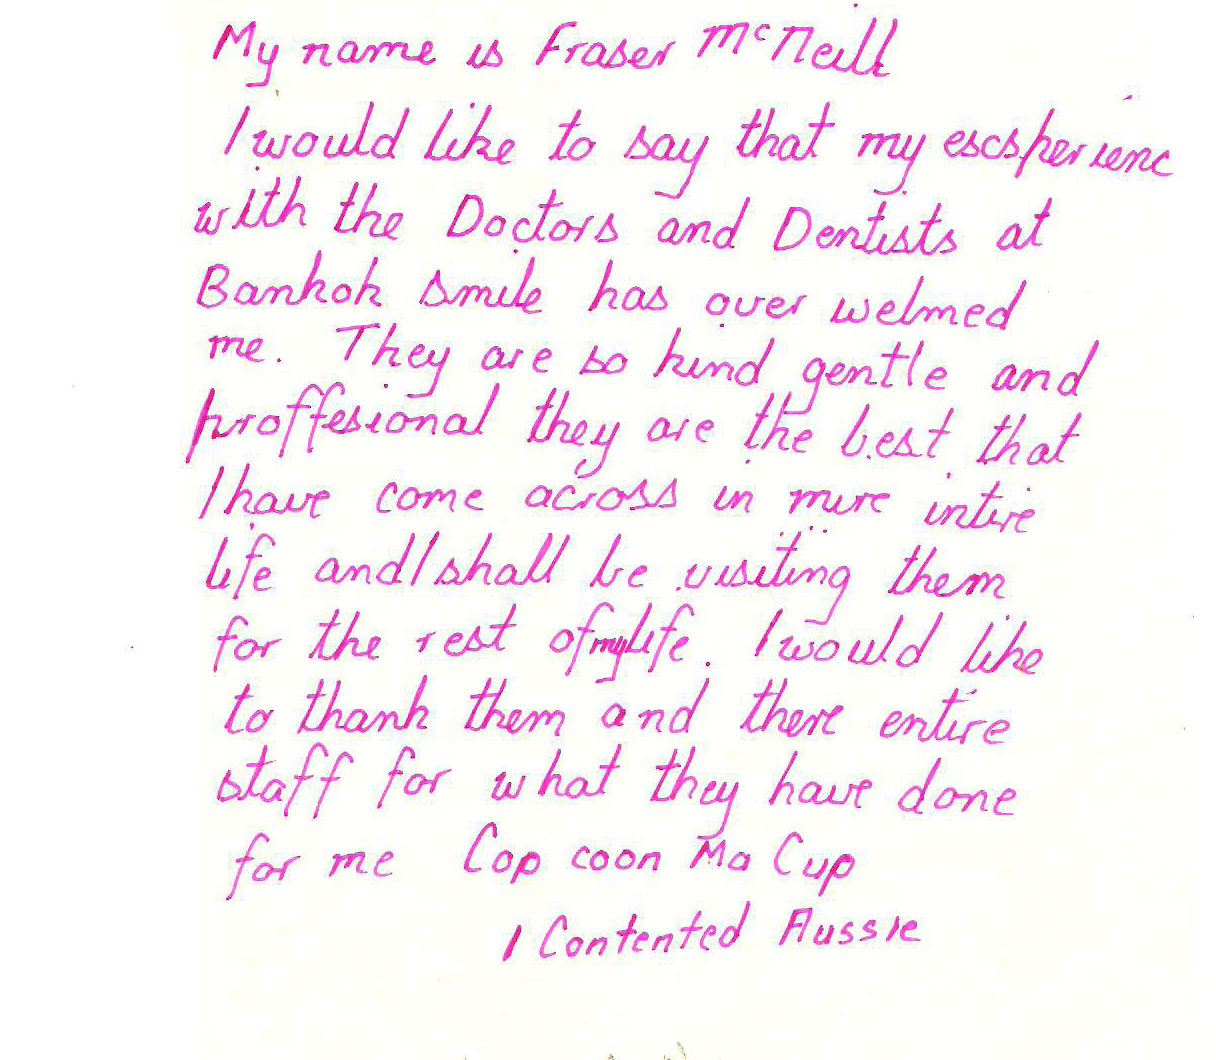 My name is Fraser McNeill
I would like to say that my escsperienc
with the Doctors and Dentists at
Bankok smile has over welmed
me. They are so kind gentle and
proffesional they are the best that
I have come across in mire intire
life and I shall be visiting them
for the rest of my life. I would like
to thank them and there entire
staff for what they have done
for me Cop coon Ma Cup
1 Contented Aussie